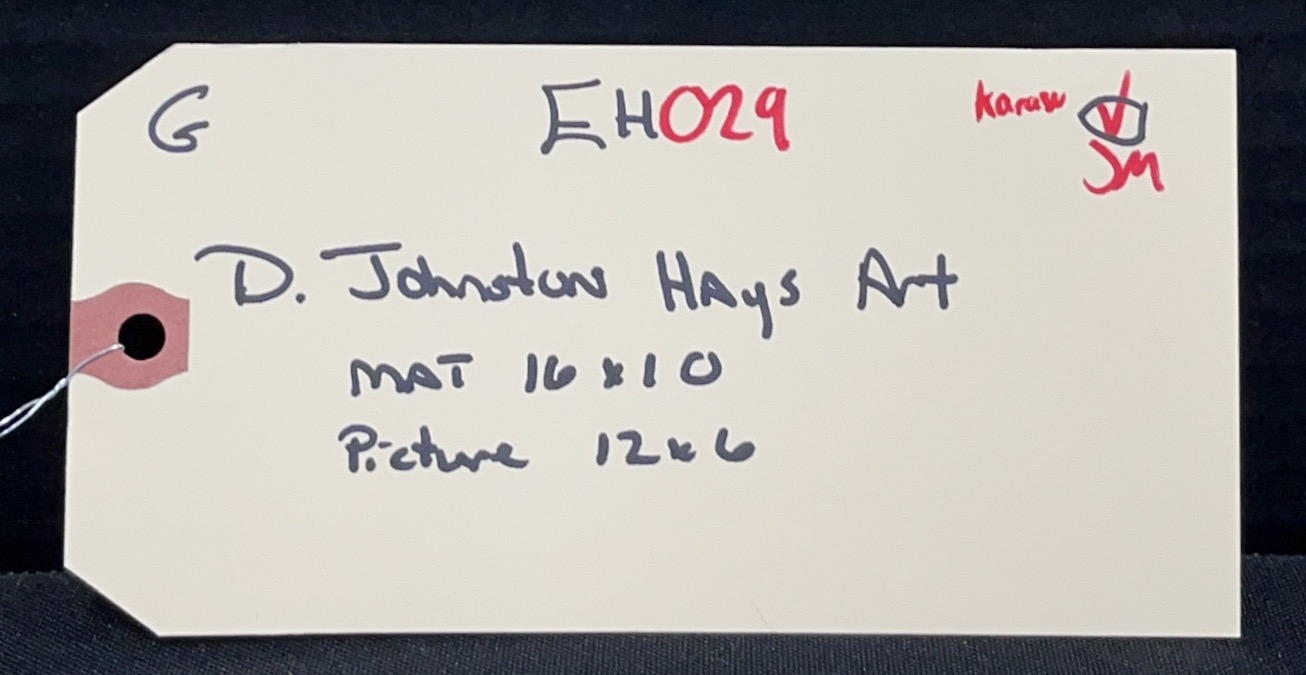 G EH029
JM
D. Johnston Hays Art
MAT 16x10
Picture 12x6